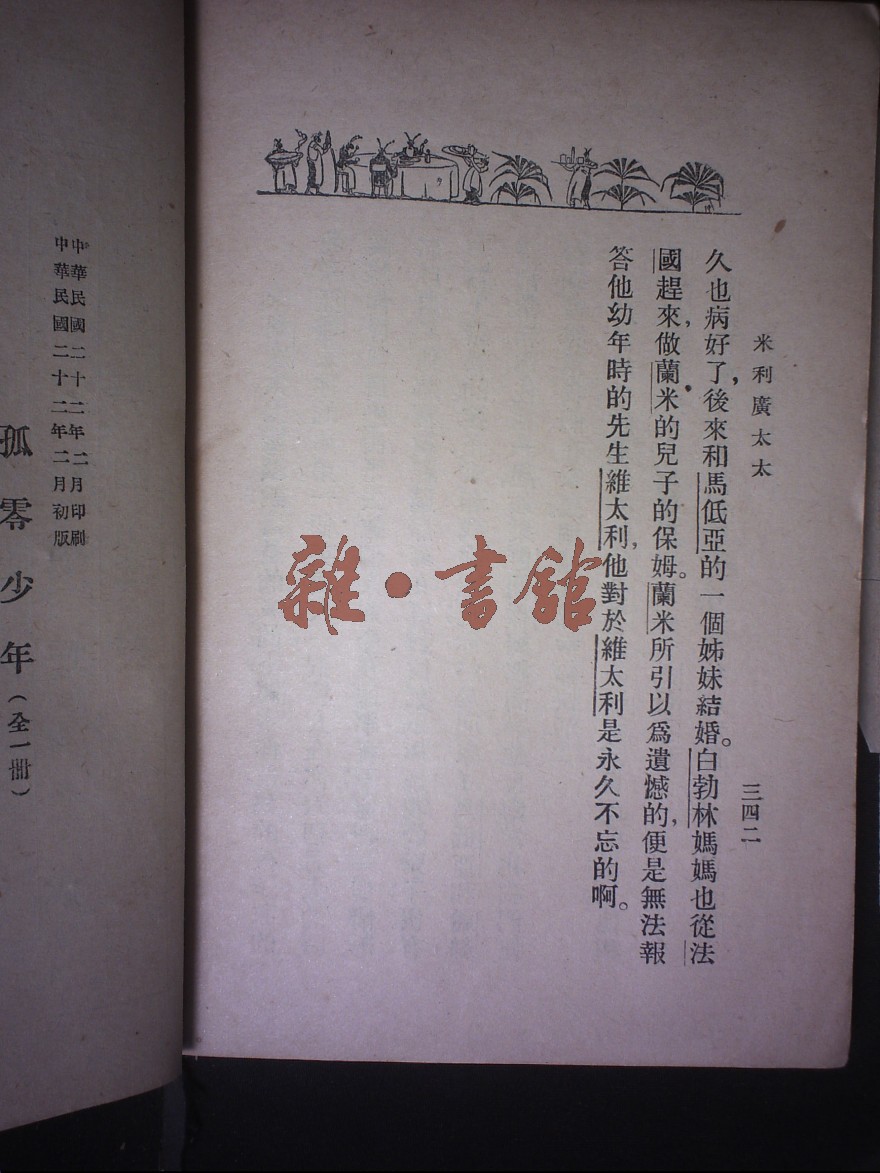 米利廣太太
三四二
久也病好了，後來和馬低亞的一個姊妹結婚。白勃林媽媽也從法
國趕來，做蘭米的兒子的保姆。蘭米所引以爲遺憾的，便是無法報
答他幼年時的先生維太利，他對於維太利是永久不忘的啊。
雜·書館
中華民國二十二年二月印刷
中華民國二十二年二月初版
孤零少年（全一冊）